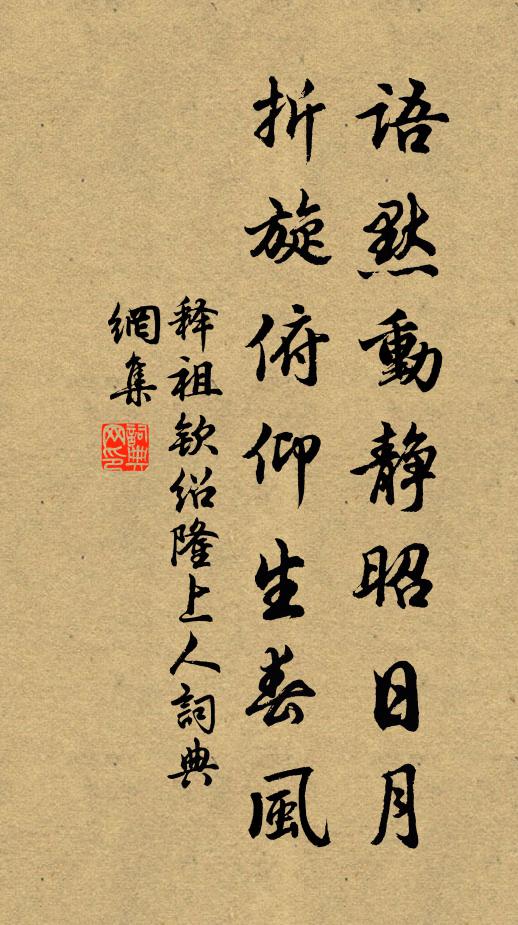 語默動靜昭日月
折旋俯仰生春風
释祖欽绍隆上人詞典
網集
詞典网印